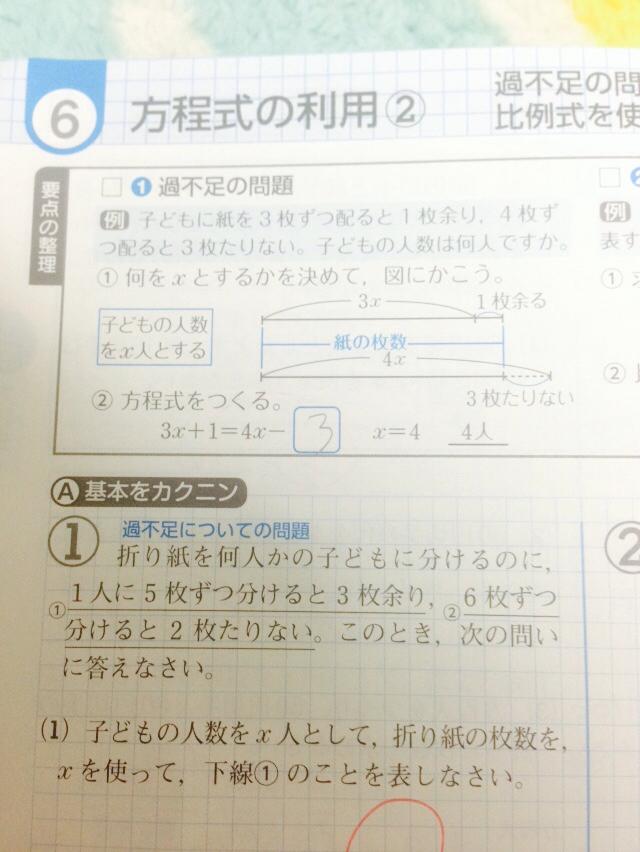 6 方程式の利用②
過不足の問
比例式を使
要点の整理
□ ❶ 過不足の問題
例 子どもに紙を3枚ずつ配ると1枚余り，4枚ず
つ配ると3枚たりない。子どもの人数は何人ですか。
① 何をxとするかを決めて，図にかこう。
3x 1枚余る
子どもの人数
をx人とする
紙の枚数
4x
3枚たりない
② 方程式をつくる。
3x+1=4x− 3 x=4 4人
□
例
表す
①
②
Ⓐ 基本をカクニン
1 過不足についての問題
折り紙を何人かの子どもに分けるのに，
①1人に5枚ずつ分けると3枚余り，②6枚ずつ
分けると2枚たりない。このとき，次の問い
に答えなさい。
(1) 子どもの人数をx人として，折り紙の枚数を，
xを使って，下線①のことを表しなさい。
2